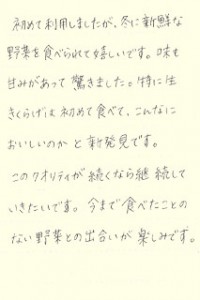 初めて利用しましたが、冬に新鮮な
野菜を食べられて嬉しいです。味も
甘みがあって驚きました。特に生
きくらげは初めて食べて、こんなに
おいしいのかと新発見です。
このクオリティが続くなら継続して
いきたいです。今まで食べたことの
ない野菜との出合いが楽しみです。